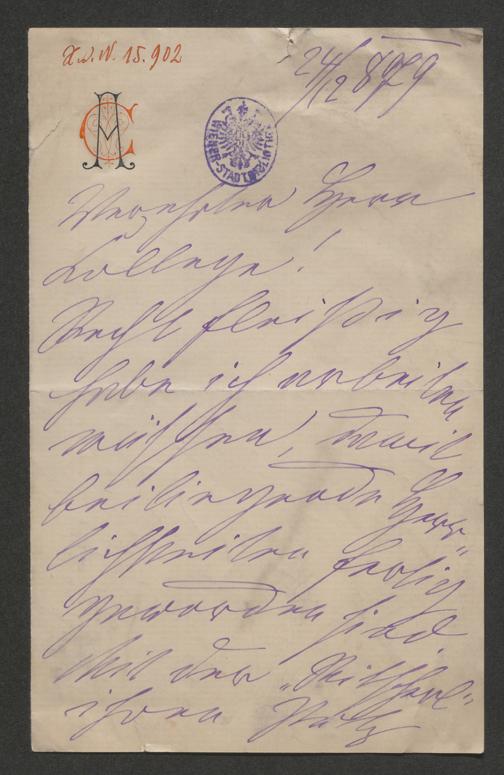 H.I.N. 15.902
24/12 879
WIENER-STADTBIBLIOTHEK
Verehrter Herr
College!
Recht fleißig
habe ich arbeiten
müssen, damit
beiliegende Herr„
lichkeiten fertig
geworden sind.
Mit der
ihren